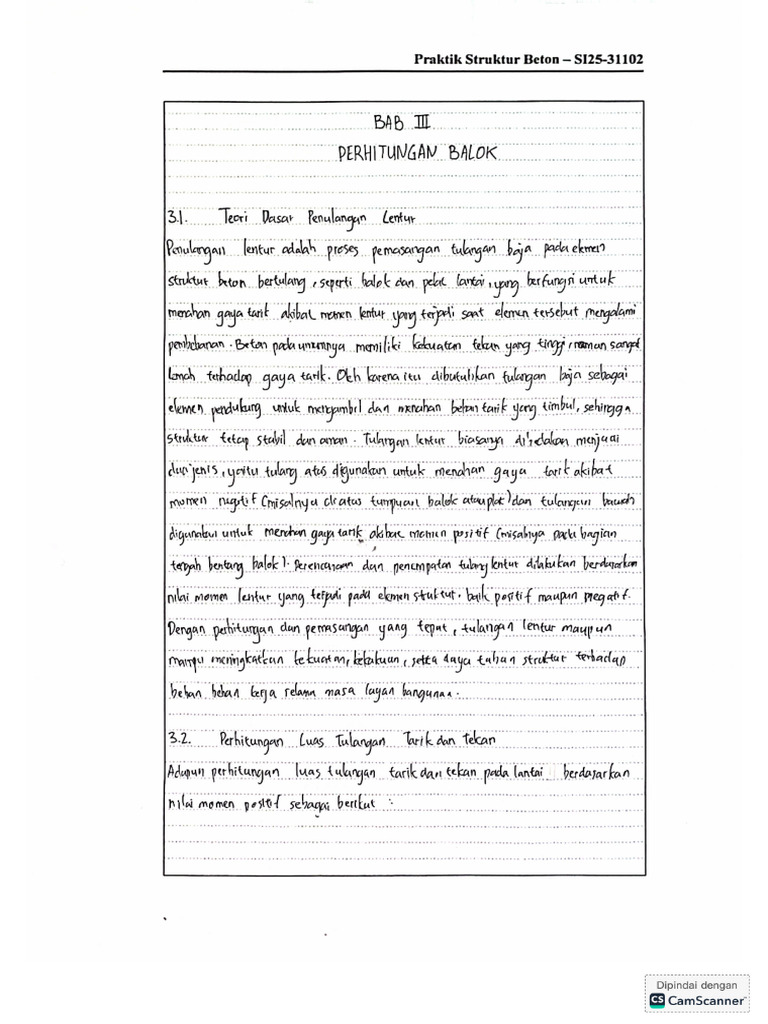 Praktik Struktur Beton – SI25-31102
BAB III
PERHITUNGAN BALOK
3.1. Teori Dasar Penulangan Lentur
Penulangan lentur adalah proses pemasangan tulangan baja pada elemen
struktur beton bertulang, seperti balok dan pelat lantai, yang berfungsi untuk
menahan gaya tarik akibat momen lentur yang terjadi saat elemen tersebut mengalami
pembebanan. Beton pada umumnya memiliki kekuatan tekan yang tinggi, namun sangat
lemah terhadap gaya tarik. Oleh karena itu dibutuhkan tulangan baja sebagai
elemen pendukung untuk mengambil dan menahan beban tarik yang timbul, sehingga
struktur tetap stabil dan aman. Tulangan lentur biasanya dibedakan menjadi
dua jenis, yaitu tulang atas digunakan untuk menahan gaya tarik akibat
momen negatif (misalnya di atas tumpuan balok atau plat) dan tulangan bawah
digunakan untuk menahan gaya tarik akibat momen positif (misalnya pada bagian
tengah bentang balok). Perencanaan dan penempatan tulang lentur dilakukan berdasarkan
nilai momen lentur yang terjadi pada elemen struktur. baik positif maupun negatif.
Dengan perhitungan dan pemasangan yang tepat, tulangan lentur maupun
mampu meningkatkan kekuatan, kekakuan, serta daya tahan struktur terhadap
beban beban kerja selama masa layan bangunan.
3.2. Perhitungan Luas Tulangan Tarik dan Tekan
Adapun perhitungan luas tulangan tarik dan tekan pada lantai berdasarkan
nilai momen positif sebagai berikut :
Dipindai dengan
CS CamScanner